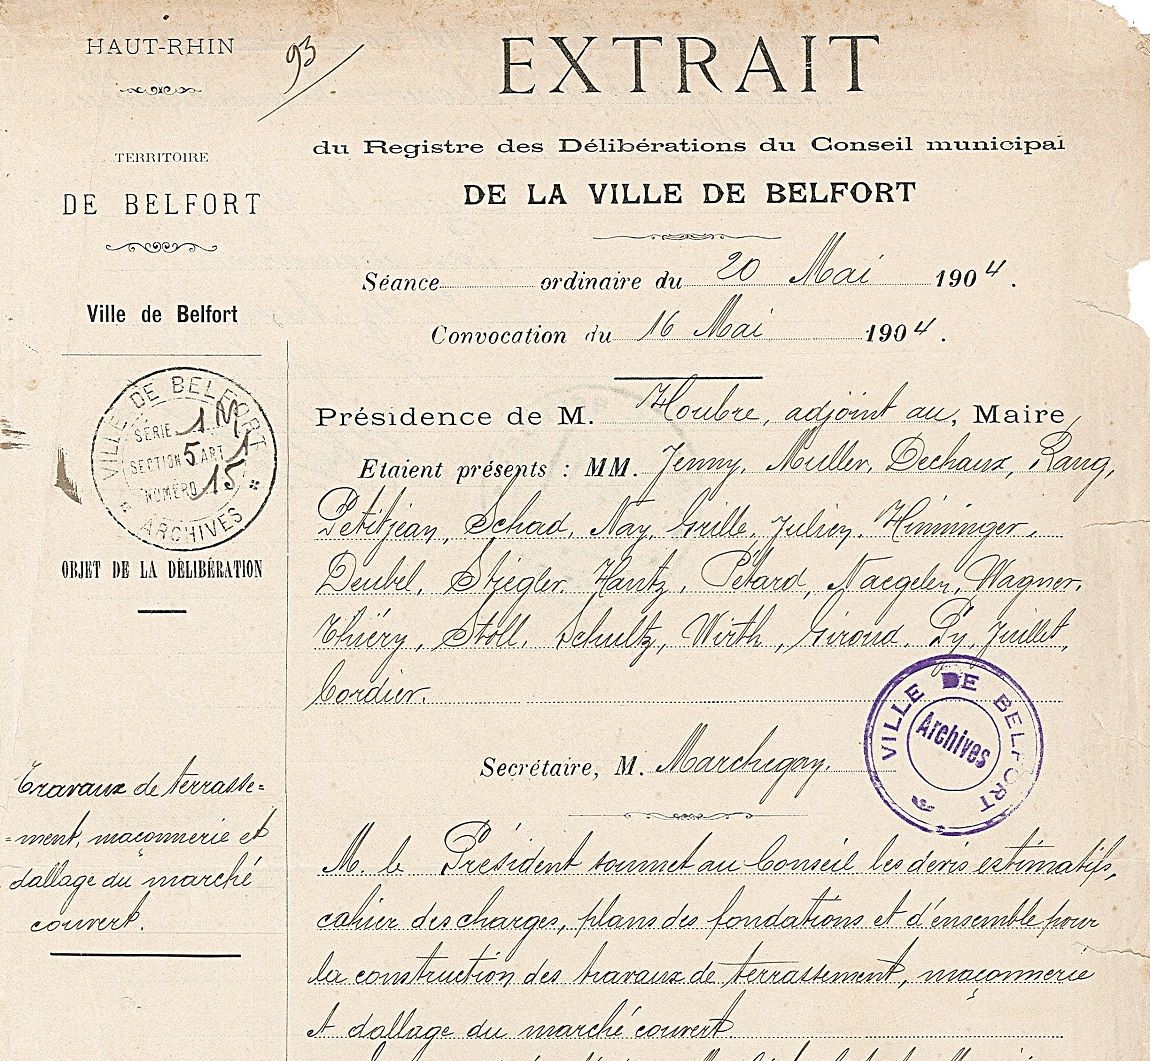 HAUT-RHIN
93
TERRITOIRE
DE BELFORT
Ville de Belfort
VILLE DE BELFORT
SÉRIE 1 M
SECTION 5 ART 1
NUMÉRO 15
ARCHIVES
OBJET DE LA DÉLIBÉRATION
Travaux de terrasse=
=ment, maçonnerie et
dallage du marché
couvert.
EXTRAIT
du Registre des Délibérations du Conseil municipal
DE LA VILLE DE BELFORT
Séance ordinaire du 20 Mai 1904.
Convocation du 16 Mai 1904.
Présidence de M. Houbre, adjoint au, Maire
Etaient présents : MM. Jenny, Muller, Dechaux, Rang,
Petitjean, Schad, Nay, Grille, Julien, Hinninger,
Deubel, Stiegler, Hantz, Pétard, Naegelen, Wagner,
Thiéry, Stoll, Schultz, Wirth, Giroud, Py, Juillet,
Cordier.
Secrétaire, M. Marchegay.
VILLE DE BELFORT
Archives
M. le Président soumet au Conseil les devis estimatifs,
cahier des charges, plans des fondations et d'ensemble pour
la construction des travaux de terrassement, maçonnerie
et dallage du marché couvert.